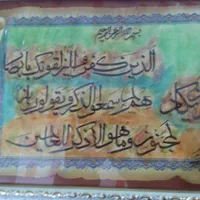 بسم الله الرحمن الرحيم
وان يكاد
الذين كفروا ليزلقونك بابصا
رهم لما سمعوا الذكر و يقولون انه
لمجنون وما هو الا ذكر للعالمين